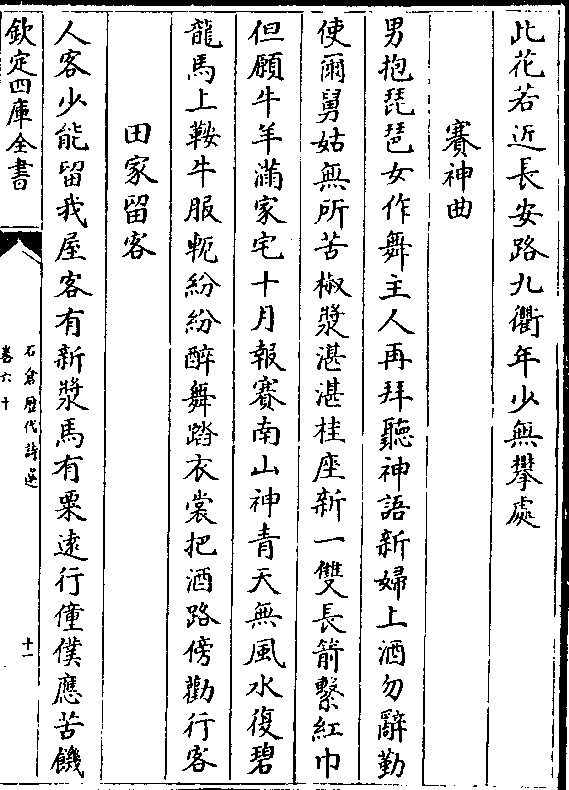 此花若近長安路九衢年少無攀處
賽神曲
男抱琵琶女作舞主人再拜聽神語新婦上酒勿辭勤
使爾舅姑無所苦椒漿湛湛桂座新一雙長箭繫紅巾
但願牛羊滿家宅十月報賽南山神青天無風水復碧
龍馬上鞍牛服軛紛紛醉舞踏衣裳把酒路傍勸行客
田家留客
人客少能留我屋客有新漿馬有粟逺行僮僕應苦饑
欽定四庫全書
石倉歴代詩選
卷六十
十一